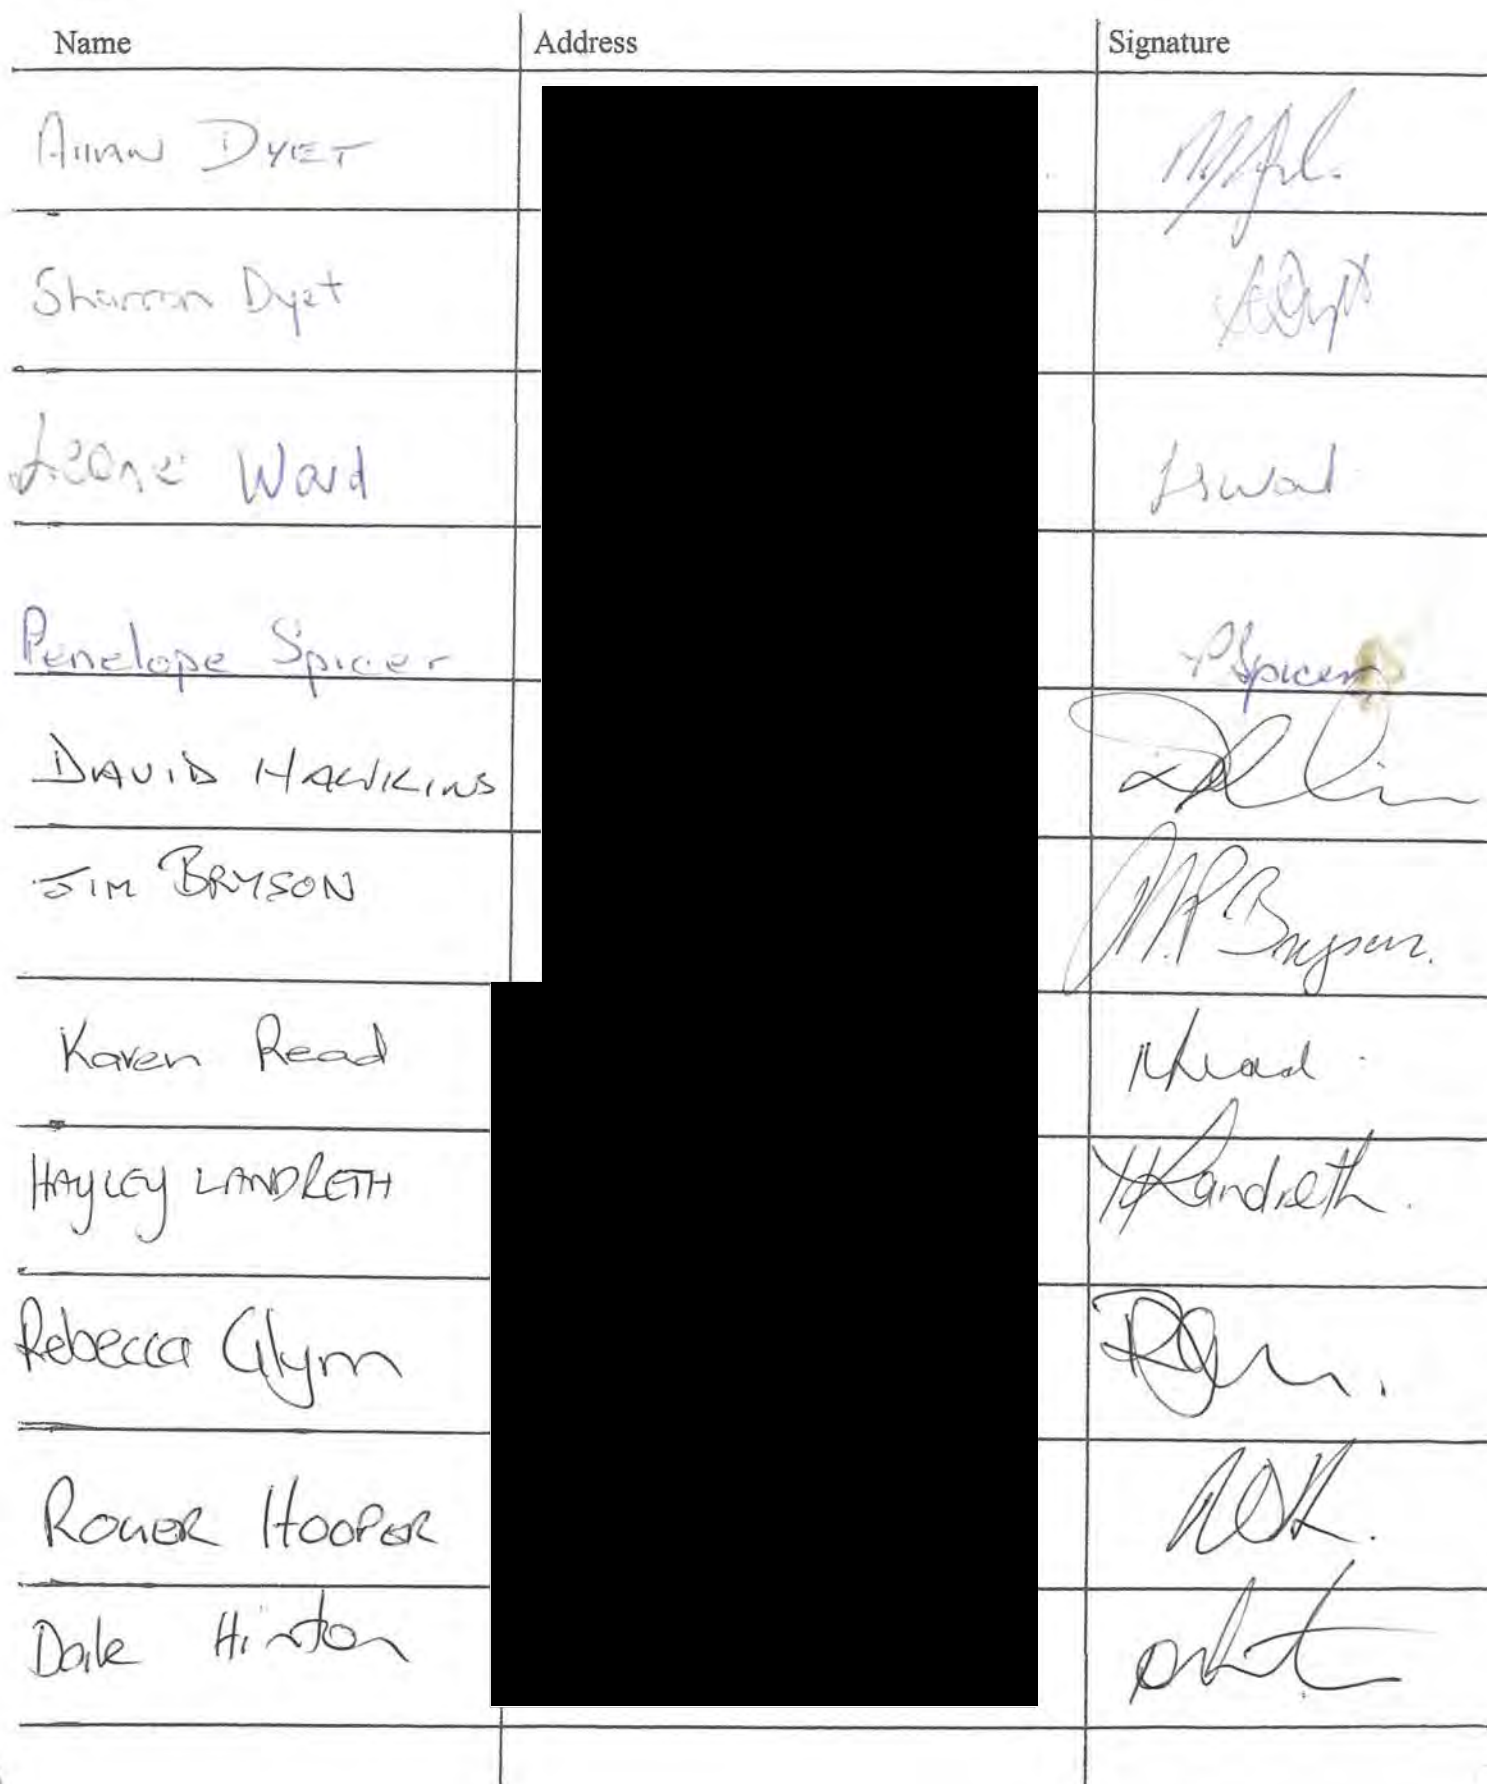 Name Address Signature
Allan Dyet
Sharron Dyet
Leone Ward Lsward
Penelope Spicer PSpicer
DAVID HAWKINS
JIM BRYSON J.M.P Bryson.
Karen Read KRead
HAYLEY LANDRETH HLandreth.
Rebecca Glynn
ROGER HOOPER
Dale Hinton